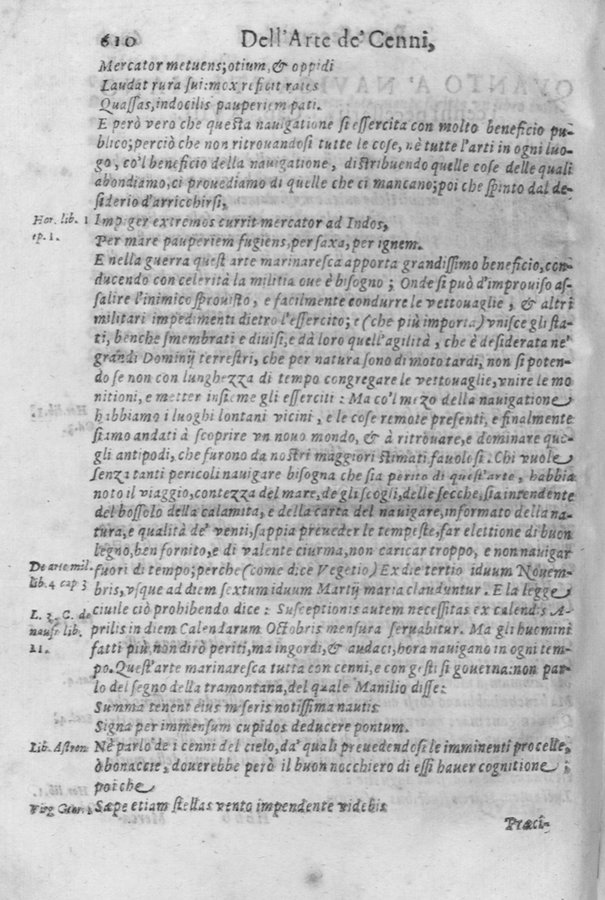 610 Dell'Arte de' Cenni,
Mercator metuens; otium, & oppidi
Laudat rura sui: mox reficit rates
Quassas, indocilis pauperiem pati.
E però vero che questa nauigatione si essercita con molto beneficio pu-
blico; perciò che non ritrouandosi tutte le cose, nè tutte l'arti in ogni luo-
go, co'l beneficio della nauigatione, distribuendo quelle cose delle quali
abondiamo, ci prouediamo di quelle che ci mancano; poi che spinto dal de-
siderio d'arricchirsi,
Hor. lib. 1
ep. 1.
Impiger extremos currit mercator ad Indos,
Per mare pauperiem fugiens, per saxa, per ignem.
E nella guerra quest'arte marinaresca apporta grandissimo beneficio, con-
ducendo con celerità la militia oue è bisogno; Onde si può d'improuiso as-
salire l'inimico sprouisto, e facilmente condurre le vettouaglie, & altri
militari impedimenti dietro l'essercito; e (che più importa) vnisce gli sta-
ti, benche smembrati e diuisi, e dà loro quell'agilità, che è desiderata ne'
grandi Dominij terrestri, che per natura sono di moto tardi, non si poten-
do se non con lunghezza di tempo congregare le vettouaglie, vnire le mo
nitioni, e metter insieme gli esserciti: Ma co'l mezo della nauigatione
habbiamo i luoghi lontani vicini, e le cose remote presenti, e finalmente
siamo andati à scoprire vn nouo mondo, & à ritrouare, e dominare que-
gli antipodi, che furono da nostri maggiori stimati fauolosi. Chi vuole
senza tanti pericoli nauigare bisogna che sia perito di quest'arte, habbia
noto il viaggio, contezza del mare, de gli scogli, delle secche, sia intendente
del bossolo della calamita, e della carta del nauigare, informato della na-
tura, e qualità de' venti, sappia preueder le tempeste, far elettione di buon
legno, ben fornito, e di valente ciurma, non caricar troppo, e non nauigar
De arte mil.
lib. 4 cap 3
fuori di tempo; perche (come dice Vegetio) Ex die tertio iduum Nouem-
bris, vsque ad diem sextum iduum Martij maria clauduntur. E la legge
L. 3. C. de
naufr. lib.
11.
ciuile ciò prohibendo dice: Susceptionis autem necessitas ex calendis A-
prilis in diem Calendarum Octobris mensura seruabitur. Ma gli huomini
fatti più non dirò periti, ma ingordi, & audaci, hora nauigano in ogni tem-
po. Quest'arte marinaresca tutta con cenni, e con gesti si gouerna: non par-
lo del segno della tramontana, del quale Manilio disse:
Summa tenent eius miseris notissima nautis
Signa per immensum cupidos deducere pontum.
Lib. Astron
Nè parlo de i cenni del cielo, da' quali preuedendosi le imminenti procelle,
ò bonaccie, douerebbe però il buon nocchiero di essi hauer cognitione;
poi che
Virg Geor. 1
Sæpe etiam stellas vento impendente videbis
Præci-